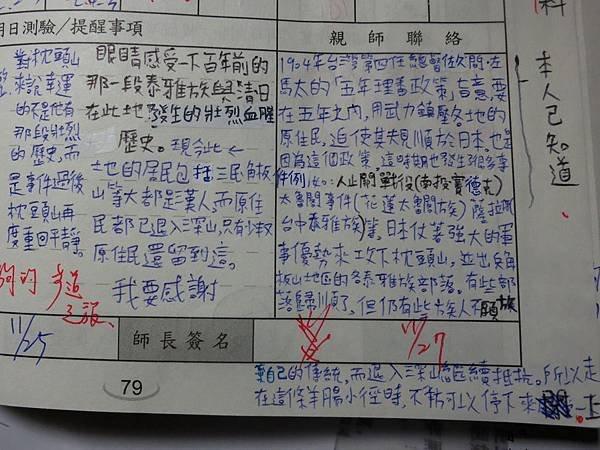 明日測驗/提醒事項
對枕頭山
來說幸運
的不是他有
那段壯烈
的歷史,而
是事件過後
枕頭山再
度重回平靜。
眼睛感受一下百年前的
那一段泰雅族與清日
在此地發生的壯烈血腥
歷史。現今此
地的居民包括三民角板
山等大都是漢人,而原住
民都已退入深山,只有少本少
原住民還留到這。
我要感謝
11/25
師長簽名
79
親師聯絡
1904年台灣第四任總督佐久間左
馬太的「五年理番政策」旨意要
在五年之內,用武力鎮壓各地的
原住民,迫使其規順於日本。也是
因為這個政策,這時期也發生很多事
件例如:人止關戰役(南投賽德克)
太魯閣事件(花蓮太魯閣族)薩拉矛
台中泰雅族)等,日本仗著強大的軍
事優勢來攻下枕頭山,並出兵角
板山地區的各泰雅族部落。有些部
落歸順了,但仍有些族人不願放
11/27
棄自己的傳統,而退入深山地區續抵抗。所以走
在這條羊腸小徑時,不妨可以停下來
本人已知道